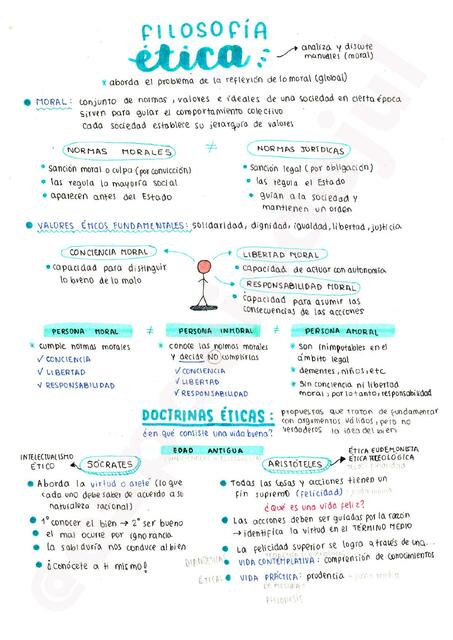 FILOSOFÍA
ética:
→ analiza y discute
manuales (moral)
* aborda el problema de la reflexión de lo moral (global)
• MORAL: conjunto de normas, valores e ideales de una sociedad en cierta época
sirven para guiar el comportamiento colectivo
Cada sociedad establece su jerarquía de valores
NORMAS MORALES ≠ NORMAS JURÍDICAS
• Sanción moral o culpa (por convicción)
• las regula la mayoría social
• aparecen antes del Estado
• Sanción legal (por obligación)
• las regula el Estado
• guían a la sociedad y
mantienen un orden
• VALORES ÉTICOS FUNDAMENTALES: solidaridad, dignidad, igualdad, libertad, justicia
CONCIENCIA MORAL
• capacidad para distinguir
lo bueno de lo malo
LIBERTAD MORAL
• capacidad de actuar con autonomía
RESPONSABILIDAD MORAL
• Capacidad para asumir las
consecuencias de las acciones
PERSONA MORAL ≠ PERSONA INMORAL ≠ PERSONA AMORAL
• cumple normas morales
✓ CONCIENCIA
✓ LIBERTAD
✓ RESPONSABILIDAD
• conoce las normas morales
y decide NO cumplirlas
✓ CONCIENCIA
✓ LIBERTAD
✓ RESPONSABILIDAD
• Son inimputables en el
ámbito legal
• dementes, niños, etc
• Sin conciencia ni libertad
moral; por lo tanto, responsabilidad
DOCTRINAS ÉTICAS:
¿en qué consiste una vida buena?
propuestas que tratan de fundamentar
con argumentos válidos, pero no
verdaderos la idea del bien
EDAD ANTIGUA
INTELECTUALISMO
ÉTICO
SÓCRATES
• Aborda la virtud o areté (lo que
cada uno debe saber de acuerdo a su
naturaleza racional)
• 1º conocer el bien → 2º ser bueno
• el mal ocurre por ignorancia
• la sabiduría nos conduce al bien
• ¡Conócete a ti mismo!
ARISTÓTELES
ÉTICA EUDEMONISTA
ÉTICA TELEOLÓGICA
• Todas las cosas y acciones tienen un
fin supremo (felicidad)
¿Qué es una vida feliz?
• Las acciones deben ser guiadas por la razón
→ identifica la virtud en el TÉRMINO MEDIO
• La felicidad superior se logra a través de una...
• VIDA CONTEMPLATIVA: comprensión de conocimientos
• VIDA PRÁCTICA: prudencia